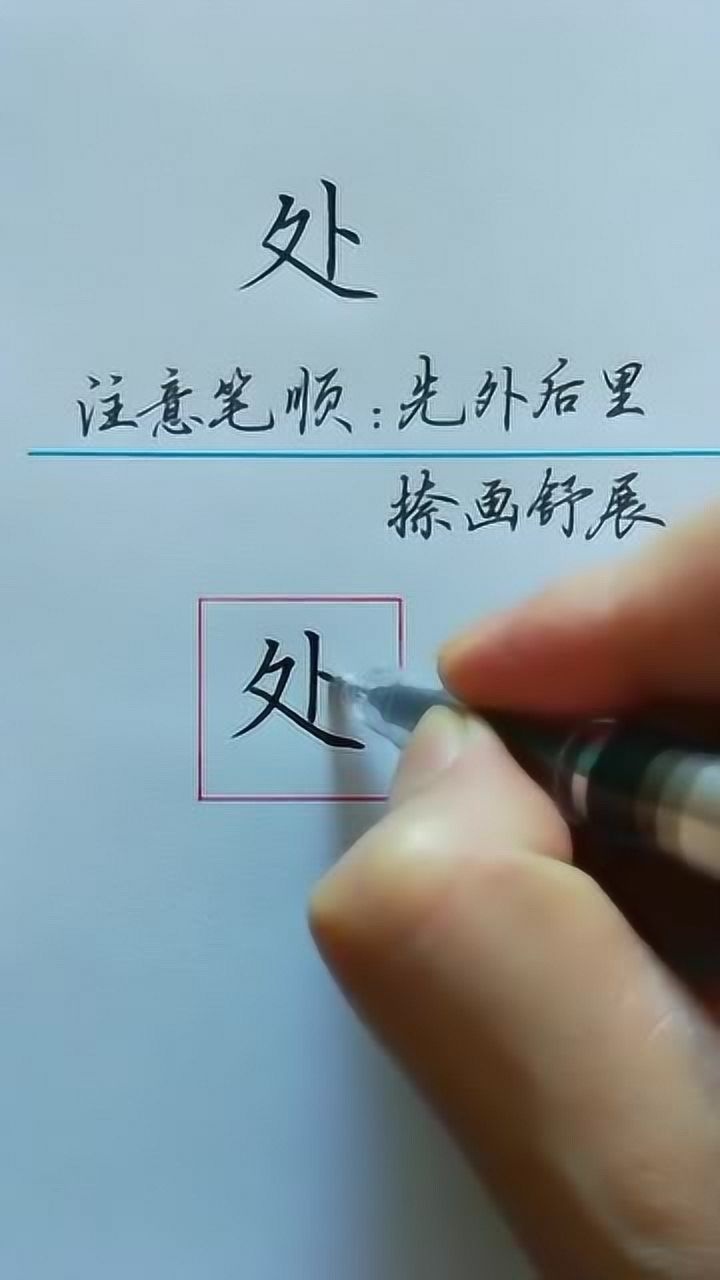 处
注意笔顺：先外后里
捺画舒展
处